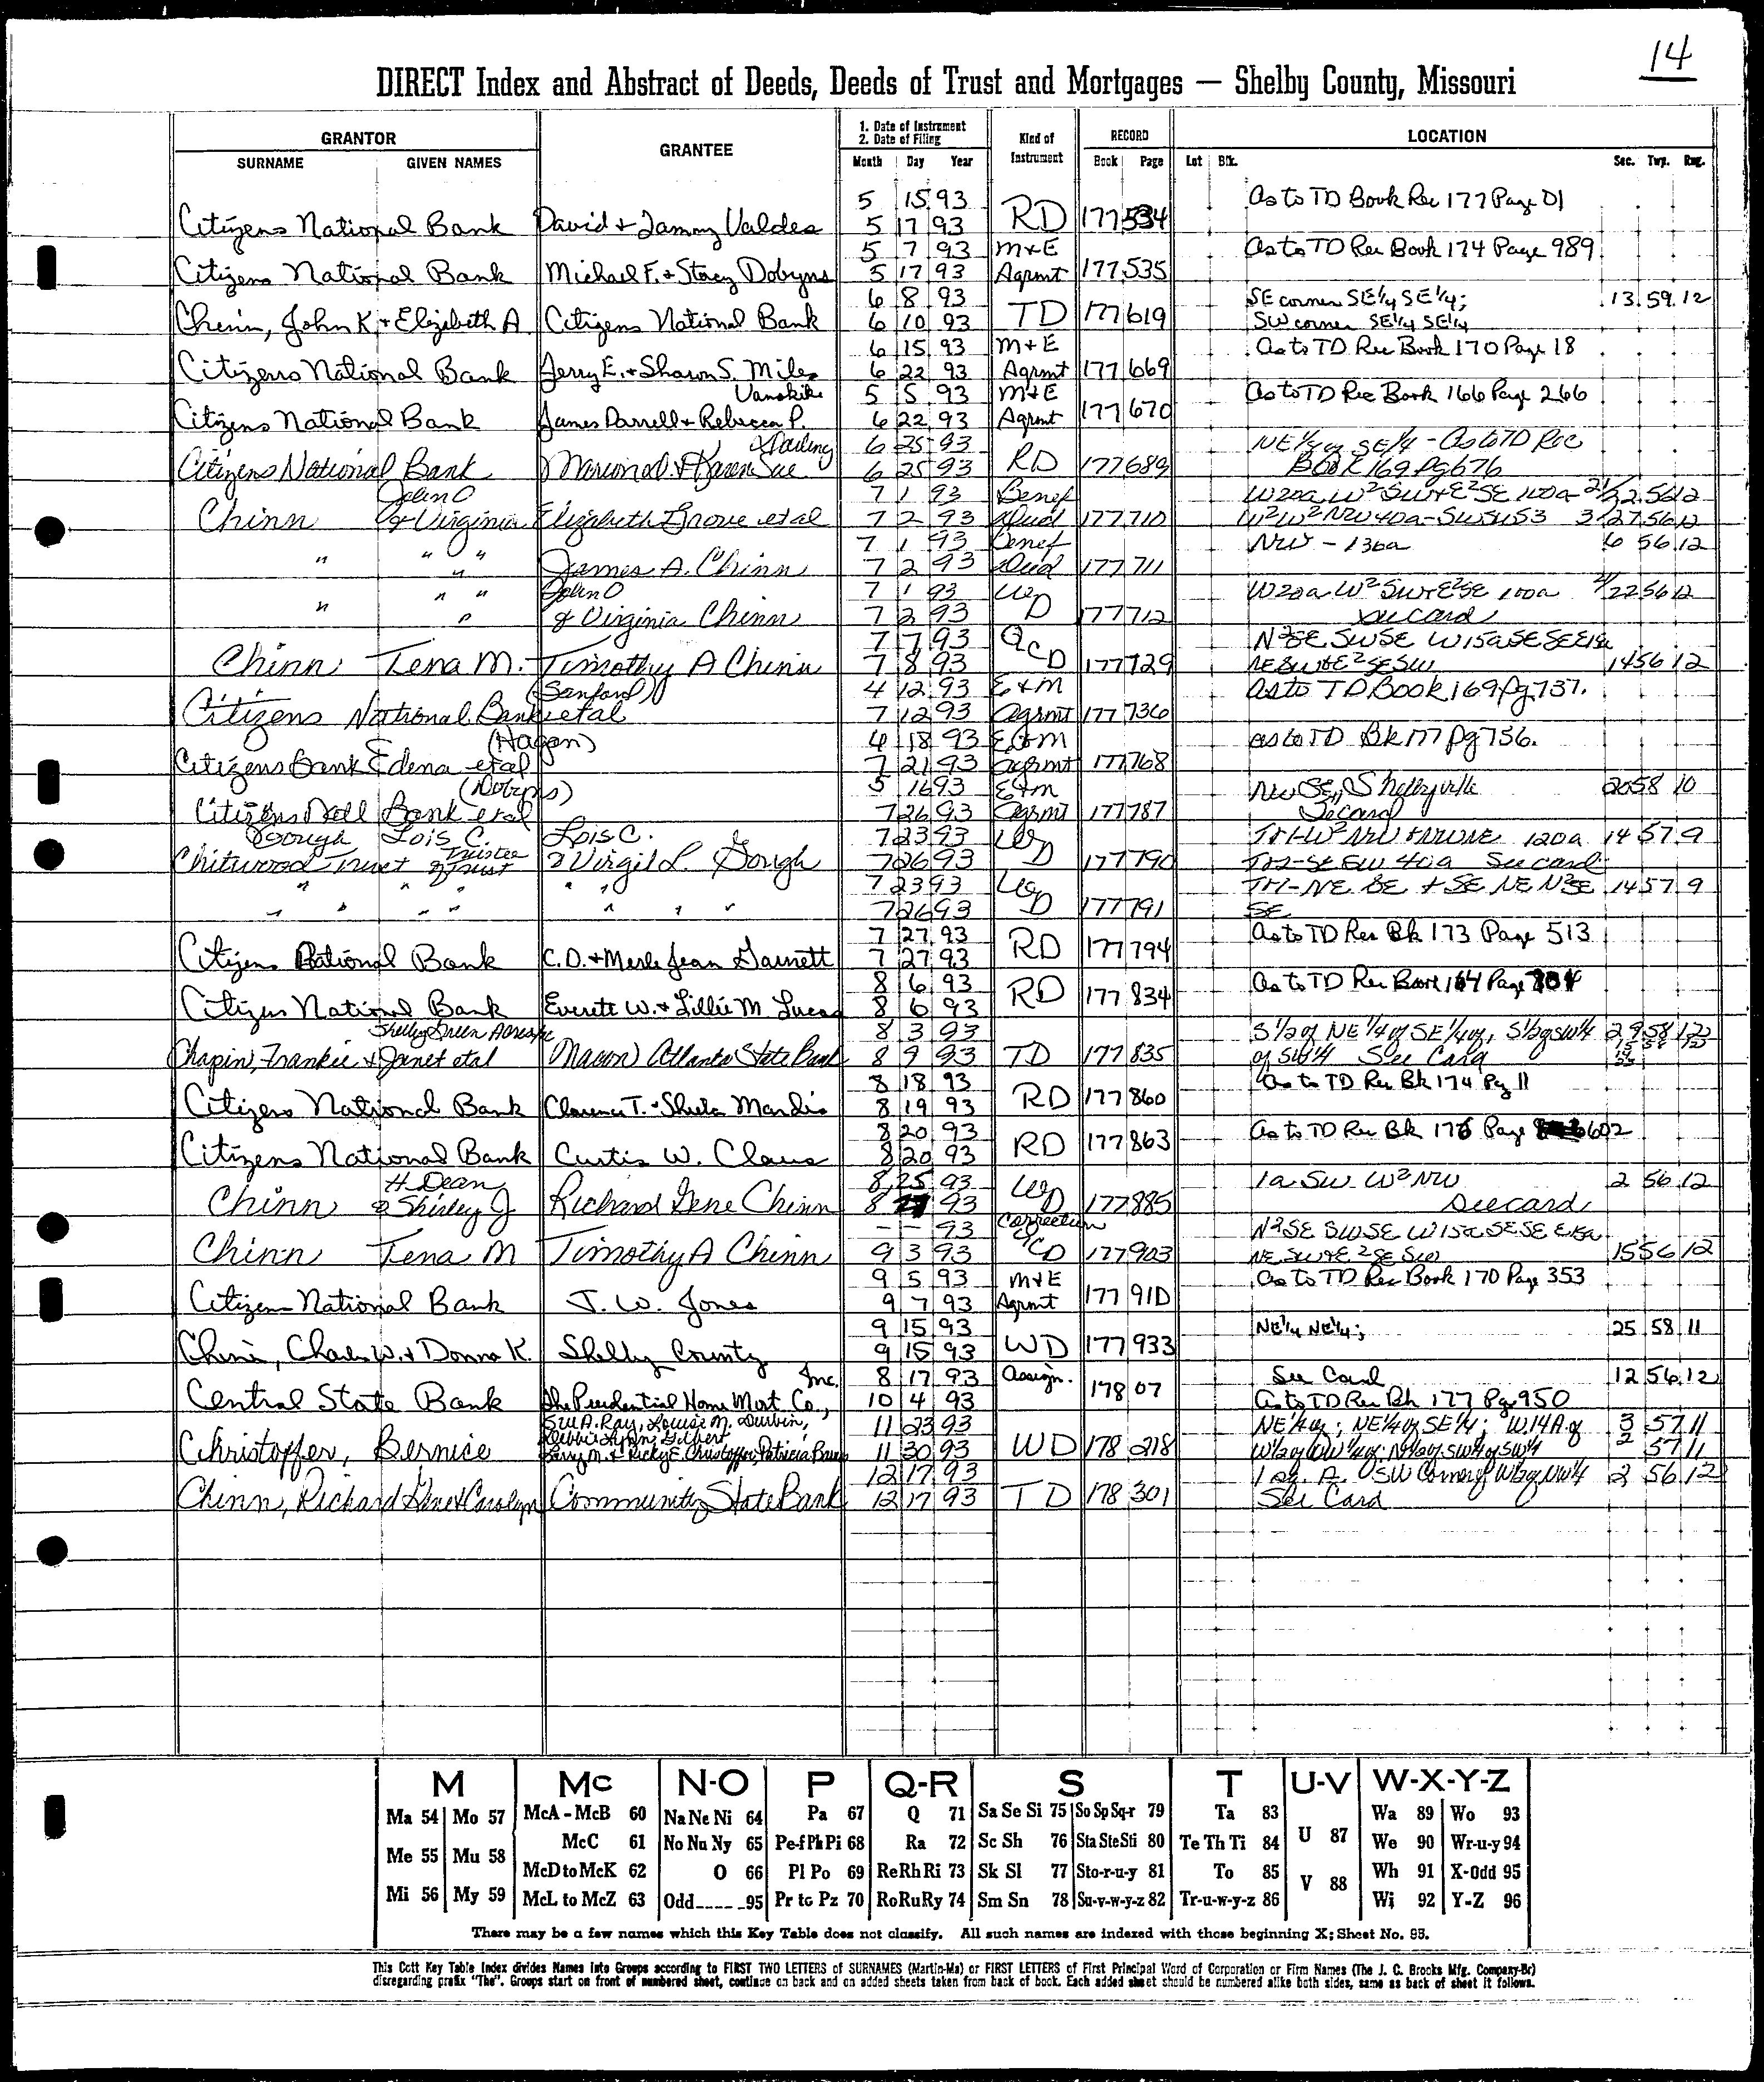 14
DIRECT Index and Abstract of Deeds, Deeds of Trust and Mortgages — Shelby County, Missouri
GRANTOR GRANTEE 1. Date of Instrument 2. Date of Filing Kind of Instrument RECORD LOCATION
SURNAME GIVEN NAMES Month Day Year Book Page Lot Blk. Sec. Twp. Rng.
5 15 93 As to TD Book Rec 177 Page 01
Citizens National Bank David & Tammy Valdes 5 17 93 RD 177 534
5 7 93 M+E As to TD Rec Book 174 Page 989
Citizens National Bank Michael F. & Stacy Dobyns 5 17 93 Agrmt 177 535
6 8 93 SE corner SE1/4 SE1/4; 13 59 12
Chinn, John K. + Elizabeth A Citizens National Bank 6 10 93 TD 177 619 SW corner SE1/4 SE1/4
6 15 93 M+E As to TD Rec Book 170 Page 18
Citizens National Bank Jerry E. + Sharon S. Miles 6 22 93 Agrmt 177 669
Vanskike 5 5 93 M+E As to TD Rec Book 166 Page 266
Citizens National Bank James Darrell + Rebecca P. 6 22 93 Agrmt 177 670
6 25 93 NE 1/4 of SE 1/4 - As to TD Rec
Citizens National Bank Marion D. & Karen Sue 6 25 93 RD 177 689 Book 169 Pg 676
John O 7 1 93 Benef W20a W2 SW+E2SE 100a 21/22 56 12
Chinn & Virginia Elizabeth Grove et al 7 2 93 Deed 177 710 W2W2NW 40a - SWSW53 3/27 56 12
7 1 93 Benef NW - 136a 6 56 12
" " " James A. Chinn 7 2 93 Deed 177 711
John O 7 1 93 W W20a W2 SW+E2SE 100a 21/22 56 12
" " " & Virginia Chinn 7 2 93 D 177 712 see card
7 7 93 QC N2SE SWSE W15aSESE
Chinn Tena M. Timothy A Chinn 7 8 93 D 177 729 NESW+E2SESW 14 56 12
(Sanford) 4 12 93 E+M As to TD Book 169 Pg 737.
Citizens National Bank et al 7 12 93 agrmt 177 736
(Hagen) 4 18 93 E&M as to TD Bk 177 pg 736.
Citizens Bank Edena et al 7 21 93 agrmt 177 768
5 16 93 E+M NW SE, Shelbyville 20 58 10
Citizens Natl Bank et al 7 26 93 agrmt 177 787 See card
Gough Lois C. Lois C. 7 23 93 W Tr1-W2 NW + NWNE 120a 14 57 9
Chitwood Trust Trustee of Trust & Virgil L. Gough 7 26 93 D 177 790 Tr2-SE SW 40a See card
7 23 93 W Tr1-NE SE + SE NE N2SE 14 57 9
" " " " " " " 7 26 93 D 177 791 SE
7 27 93 As to TD Rec Bk 173 Page 513
Citizens National Bank C.D. + Merle Jean Garnett 7 27 93 RD 177 794
8 6 93 As to TD Rec Book 164 Page
Citizens National Bank Everett W. & Lillie M Lucas 8 6 93 RD 177 834
Shelby Green Acres Inc 8 3 93 S 1/2 of NE 1/4 of SE 1/4 of, S 1/2 of SW 1/4 29 58 12
Chapin, Frankie & Janet et al Macon Atlanta State Bank 8 9 93 TD 177 835 of SW 1/4 See Card
8 18 93 As to TD Rec Bk 174 Pg 11
Citizens National Bank Clarence T. + Sheila Mardis 8 19 93 RD 177 860
8 20 93 As to TD Rec Bk 176 Page 602
Citizens National Bank Curtis W. Claus 8 20 93 RD 177 863
H. Dean 8 25 93 W 1a SW W2NW 2 56 12
Chinn & Shirley J Richard Gene Chinn 8 27 93 D 177 885 See card
— — 93 Correction N2SE SWSE W15aSESE
Chinn Tena M Timothy A Chinn 9 3 93 QCD 177 903 NESW+E2SESW 15 56 12
9 5 93 M+E As to TD Rec Book 170 Page 353
Citizens National Bank J. W. Jones 9 7 93 Agrmt 177 910
9 15 93 NE1/4 NE1/4; 25 58 11
Chinn, Charles W. + Donna K. Shelby County 9 15 93 WD 177 933
Inc. 8 17 93 Assign. See Card 12 56 12
Central State Bank The Prudential Home Mort. Co., 10 4 93 178 07 As to TD Rec Bk 177 Pg 950
Sue A. Ray, Louise M. Durbin, 11 23 93 NE 1/4 of; NE 1/4 of SE 1/4; W. 14 A. of 3 57 11
Debbie Lynn Gilbert,
Christoffer, Bernice Larry M. & Ricky E. Christoffer, Patricia 11 30 93 WD 178 218 W 1/2 of NW 1/4 of; N 1/2 of SW 1/4 of SW 1/4 2 57 11
12 17 93 1 sq. A. SW Corner of W 1/2 of NW 1/4 2 56 12
Chinn, Richard Gene & Carolyn Community State Bank 12 17 93 TD 178 301 See Card
M Mc N-O P Q-R S T U-V W-X-Y-Z
Ma 54 Mo 57 McA - McB 60 Na Ne Ni 64 Pa 67 Q 71 Sa Se Si 75 So Sp Sq-r 79 Ta 83 U 87 Wa 89 Wo 93
Me 55 Mu 58 McC 61 No Nu Ny 65 Pe-f Ph Pi 68 Ra 72 Sc Sh 76 Sta Ste Sti 80 Te Th Ti 84 We 90 Wr-u-y 94
McD to McK 62 O 66 Pl Po 69 Re Rh Ri 73 Sk Sl 77 Sto-r-u-y 81 To 85 V 88 Wh 91 X-Odd 95
Mi 56 My 59 McL to McZ 63 Odd 95 Pr to Pz 70 Ro Ru Ry 74 Sm Sn 78 Su-v-w-y-z 82 Tr-u-w-y-z 86 Wi 92 Y-Z 96
There may be a few names which this Key Table does not classify. All such names are indexed with those beginning X; Sheet No. 95.
This Cott Key Table Index divides Names into Groups according to FIRST TWO LETTERS of SURNAMES (Martin-Ma) or FIRST LETTERS of First Principal Word of Corporation or Firm Names (The J. C. Brooks Mfg. Company-Br)
disregarding prefix "The". Groups start on front of numbered sheet, continue on back and on added sheets taken from back of book. Each added sheet should be numbered alike both sides, same as back of sheet it follows.